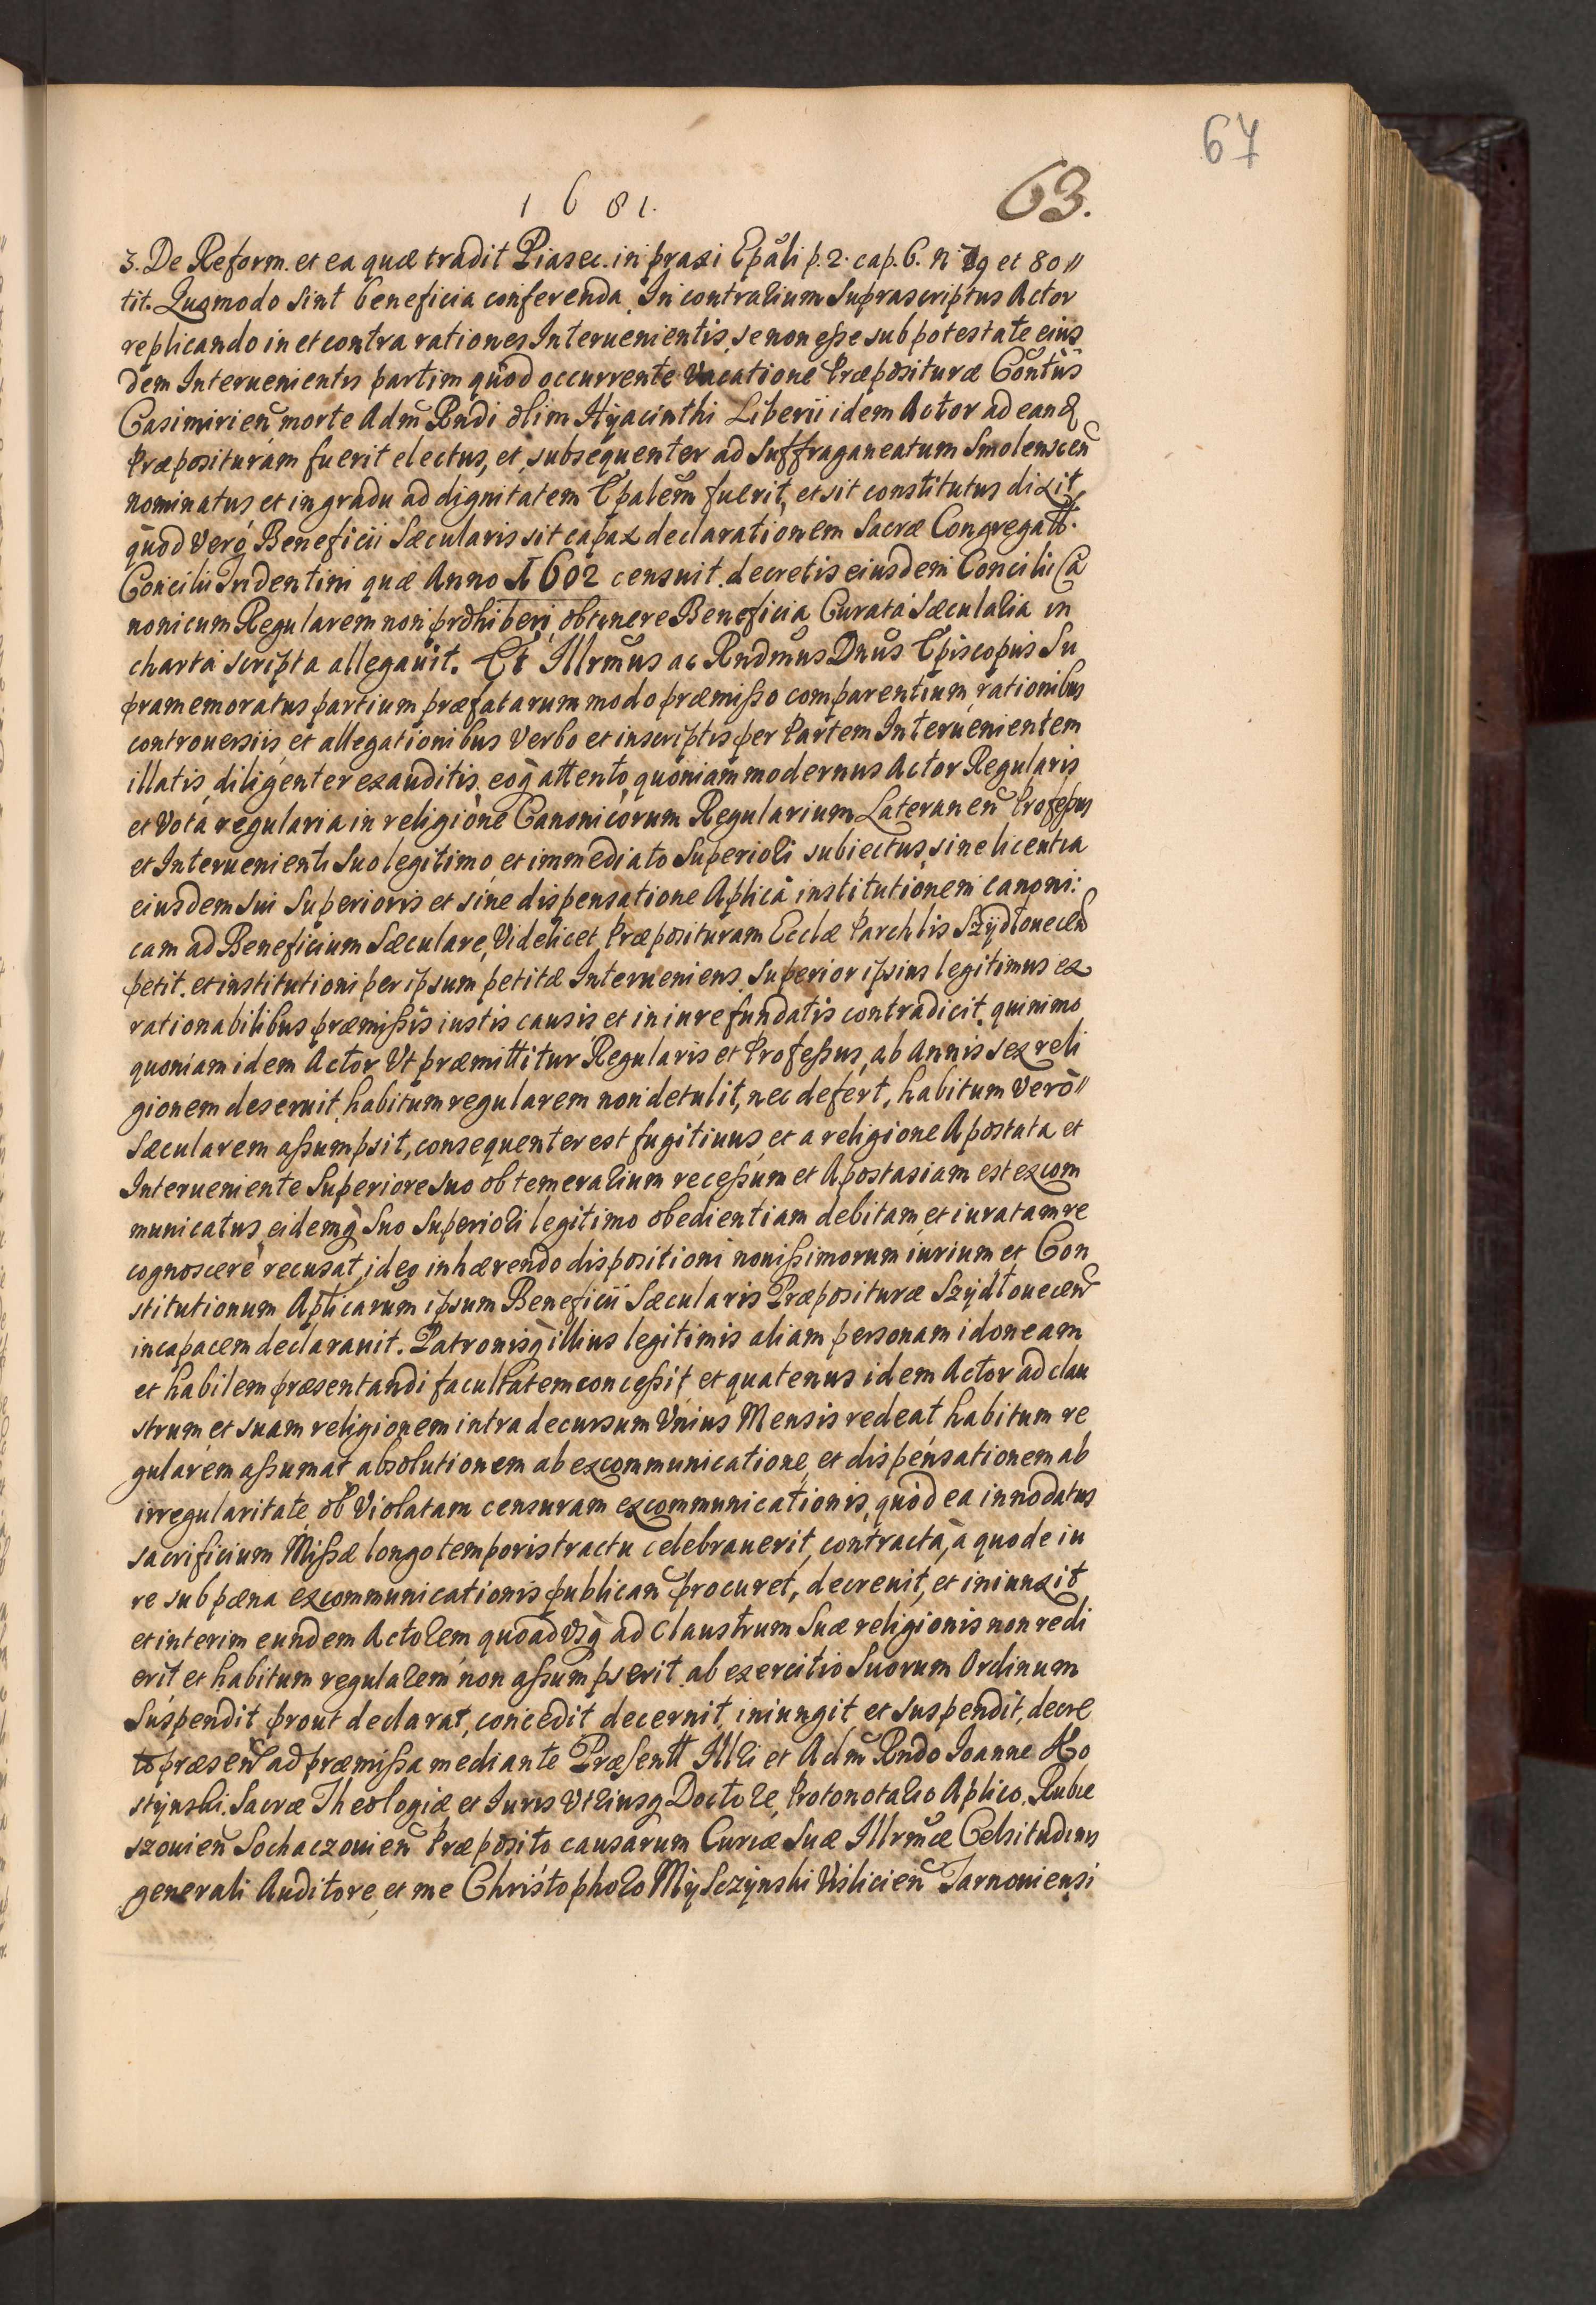 67
1681.
63.
3. De Reform. et ea quæ tradit Piasec. in praxi Epãli p. 2. cap. 6. n 79 et 80 //
tit. Quomodo sint beneficia conferenda. In contrarium Suprascriptus Actor
replicando in et contra rationes Interuenientis, se non esse sub potestate eius
dem Interuenientis partim quòd occurrente Vacatione Præposituræ Contũs
Casimirien̄ morte Adm̃ Rndi olim Hyacinthi Liberii idem Actor ad eand
Præposituram fuerit electus, et subsequenter ad Suffraganeatum Smolenscen̄
nominatus et in gradu ad dignitatem Epalem̃ fuerit, et sit constitutus dixit,
quòd verò Beneficii Sæcularis sit capax declarationem Sacræ Congregatt.
Concilii Tridentini quæ Anno 1602 censuit decretis eiusdem Concilii Ca
nonicum Regularem non prohiberi obtinere Beneficia Curata Sæcularia in
charta scripta allegauit. Et Illrm̃us ac Rndm̃us Dnũs Episcopus Su
pramemoratus partium præfatarum modo præmisso comparentium, rationibus
controuersiis et allegationibus Verbo et inscriptis per Partem Interuenientem
illatis, diligenter exauditis, eoq̀ attento, quoniam modernus Actor Regularis
et Vota regularia in religione Canonicorum Regularium Lateranen̄ Professus
et Interuenienti Suo legitimo et immediato Superiori subiectus, sine licentia
eiusdem sui Superioris et sine dispensatione Aplicã institutionem canoni:
cam ad Beneficium Sæculare, Videlicet Præposituram Ecclæ Parchlis Szydłouecen̄
petit. et institutioni per ipsum petitæ Interueniens Superior ipsius legitimus ex
rationabilibus præmissis iustis causis et in iure fundatis contradicit, quinimo
quoniam idem Actor Vt præmittitur Regularis et Professus, ab Annis sex reli
gionem deseruit, habitum regularem non detulit, nec defert, habitum Verò //
Sæcularem assumpsit, consequenter est fugitiuus, et a religione Apostata et
Interueniente Superiore Suo ob temerarium recessum et Apostasiam est excom
municatus, eidemq̀ Suo Superiori legitimo obedientiam debitam et iuratam re
cognoscere recusat, ideo inhærendo dispositioni nouissimorum iurium et Con
stitutionum Aplicarum̃ ipsum Beneficii Sæcularis Præpositurae Szydłouecen̄
incapacem declarauit. Patronisq̀ illius legitimis aliam personam idoneam
et habilem præsentandi facultatem concessit, et quatenus idem Actor ad clau
strum et suam religionem intra decursum Vnius Mensis redeat habitum re
gularem assumat absolutionem ab excommunicatione, et dispensationem ab
irregularitate ob Violatam censuram excommunicationis, quòd ea innodatus
sacrificium Missæ longo temporis tractu celebrauerit, contracta, à quo de iu
re sub pœna excommunicationis publican̄ procuret, decreuit, et iniunxit
et interim eundem Actorem quoadvsq̀ ad Claustrum Suæ religionis non redi
erit et habitum regularem non assumpserit, ab exercitio Suorum Ordinum
Suspendit prout declarat, concedit decernit, iniungit et suspendit, decre
to præsen̄ ad præmissa mediante Præsentt Illri et Adm̃ Rndo Ioanne Ho
styński Sacræ Theologiæ et Iuris Vtriusq Doctore, Protonotario Aplico, Rubie
szouien̄ Sochaczouien̄ Præposito causarum Curiæ Suæ Illrm̃æ Celsitudinis
generali Auditore, et me Christophoro Myszczyński Vislicien̄ Tarnouiensi